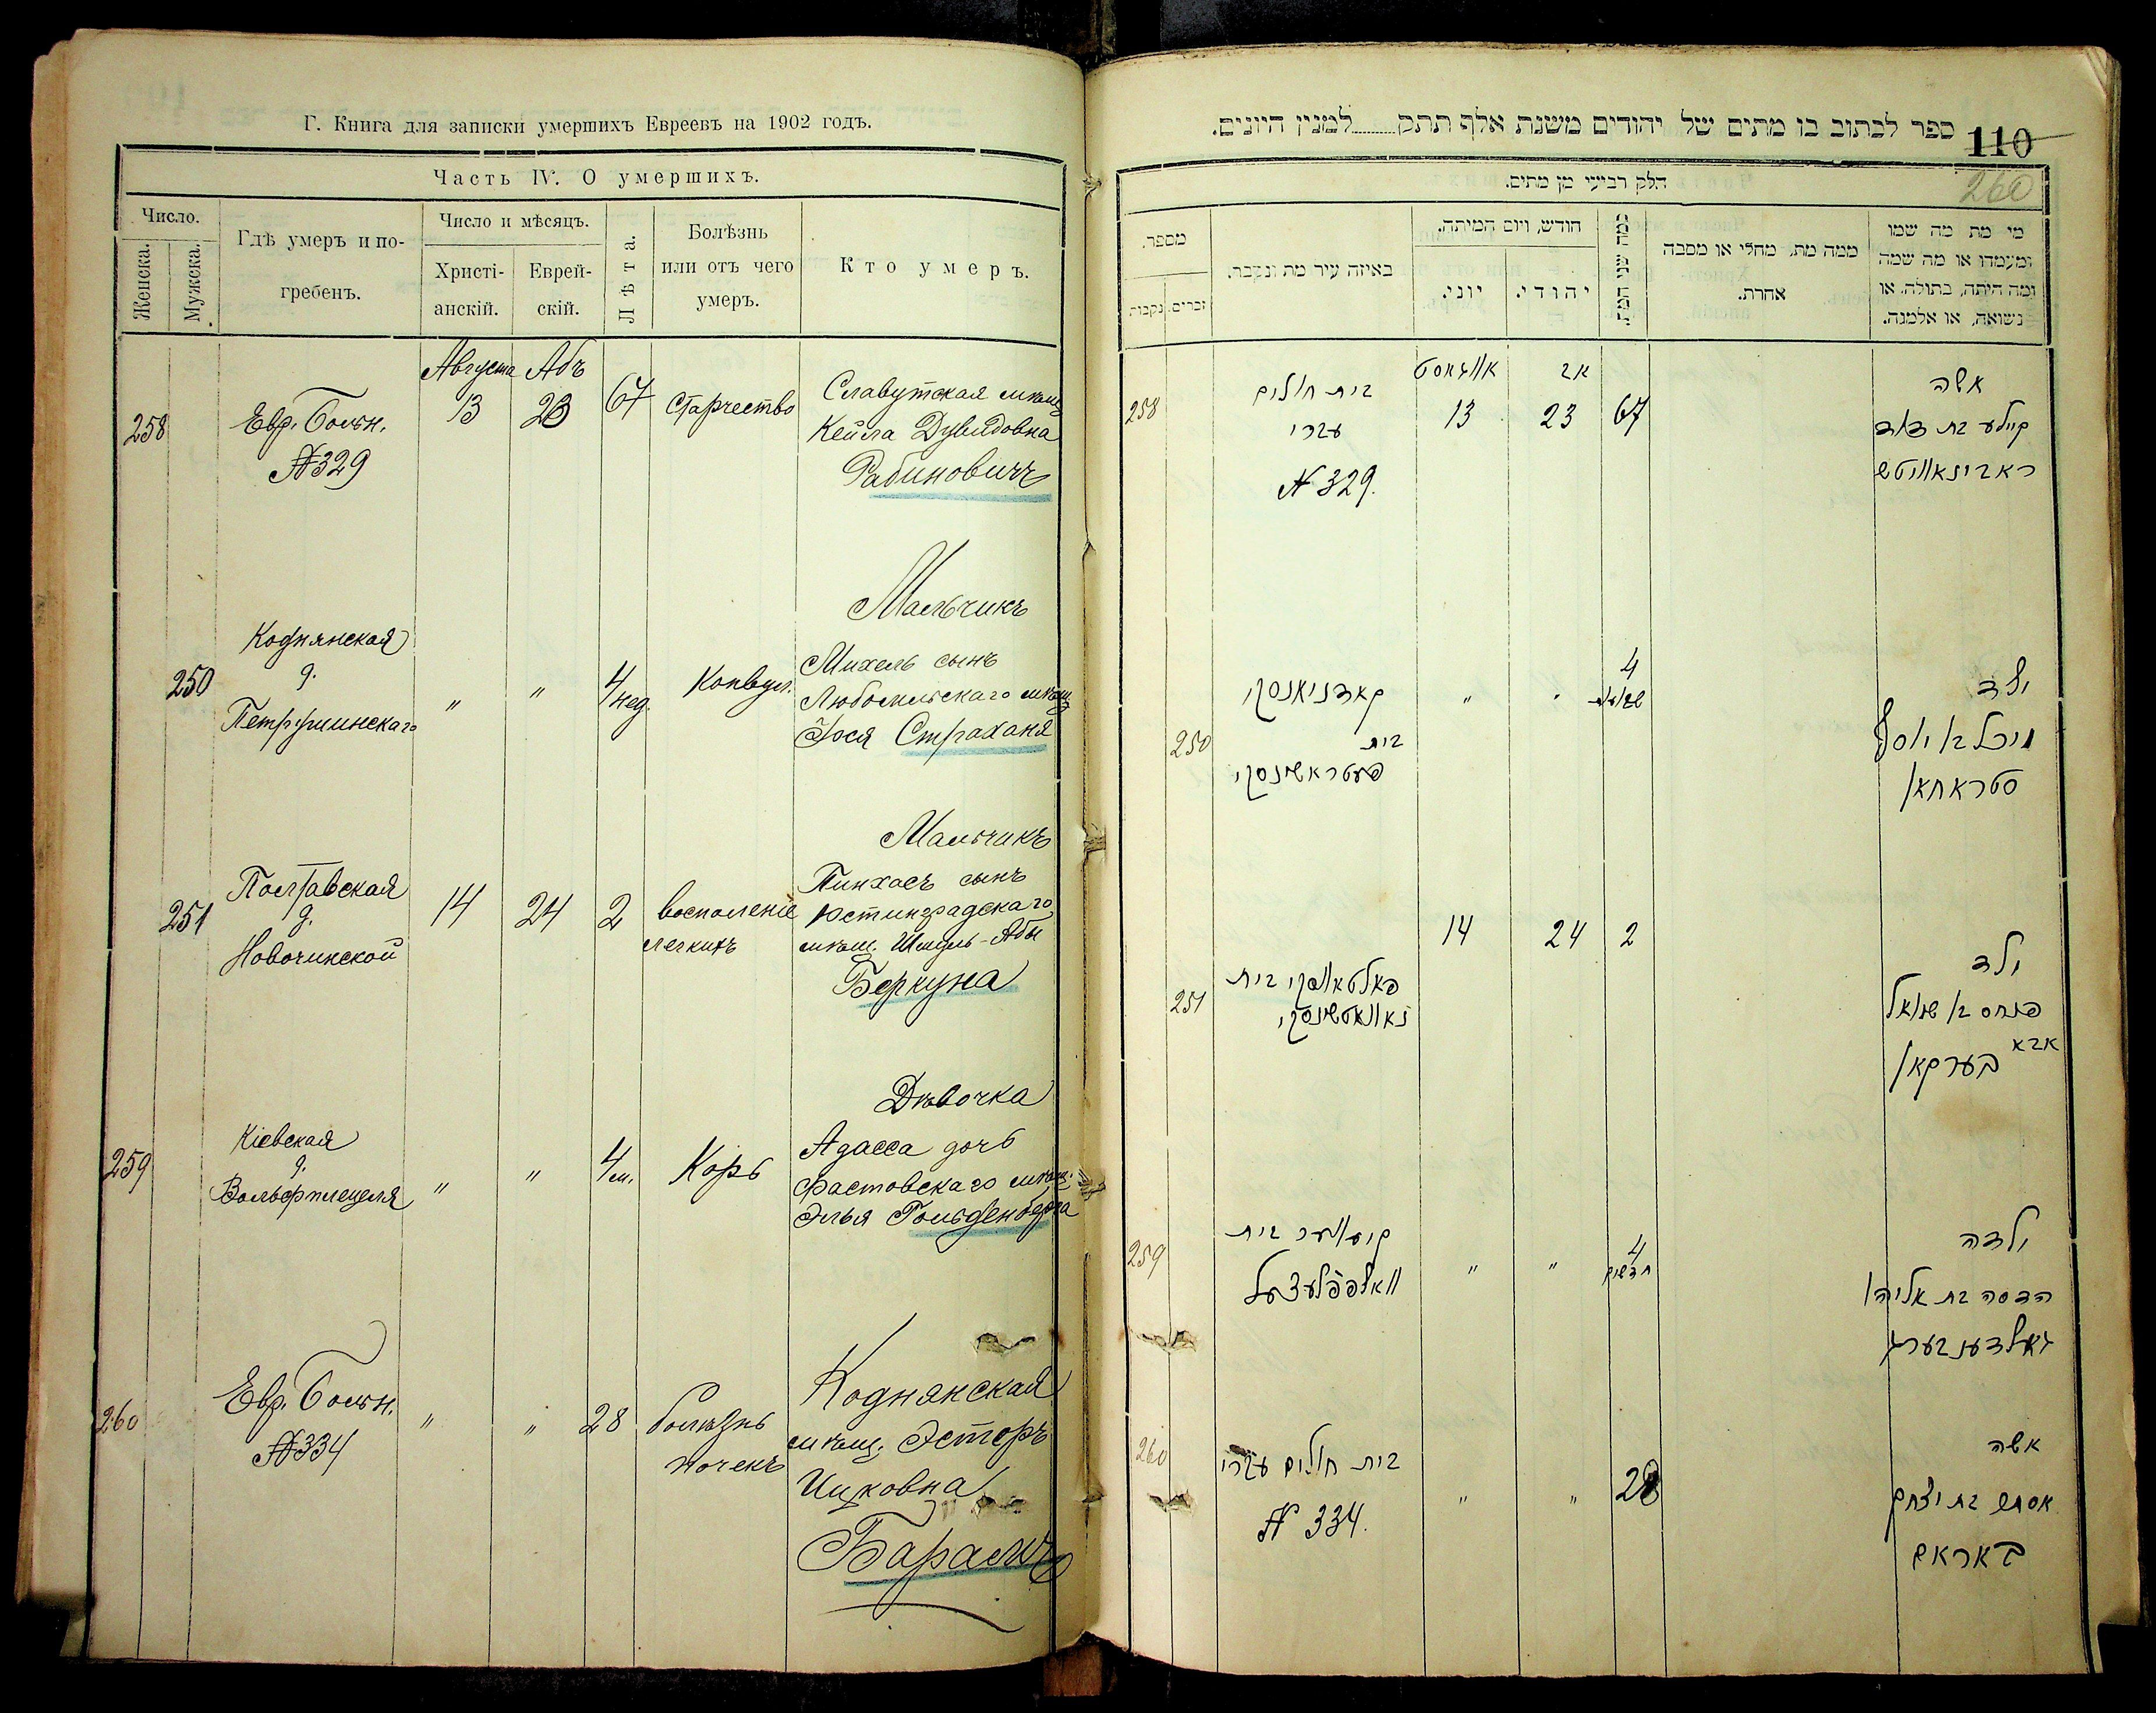 Г. Книга для записки умершихъ Евреевъ на 1902 годъ.
Часть IV. О умершихъ.
Число.
Женска.
Мужска.
Гдѣ умеръ и по-
гребенъ.
Число и мѣсяцъ.
Христі-
анскій.
Еврей-
скій.
Лѣта.
Болѣзнь
или отъ чего
умеръ.
Кто умеръ.
Августа Абъ
258 Евр. больн. 13 23 67 старчество Славутская мѣщ
№329 Кейла Дувидовна
Рабиновичъ
Мальчикъ
Коднянская Михель сынъ
250 д. " " 4 нед. Конвул. Любомльскаго мѣщ
Петрушинскаго Іося Страхана
Мальчикъ
Полтавская Пинхасъ сынъ
251 д. 14 24 2 воспаленіе Юстинградскаго
Новочинской легкихъ мѣщ. Шмуль-Абы
Беркуна
Дѣвочка
Кіевская Адасса дочь
259 д. " " 4 м. Корь Фастовскаго мѣщ.
Вольфплецеля Элья Гольденберга
Евр. больн. Коднянская
260 №334 " " 28 болѣзнь мѣщ. Эстеръ
почекъ Ицковна
Барамъ
ספר לכתוב בו מתים של יהודים משנת אלף תתק למנין היונים.
110
260
חלק רביעי מן מתים.
מספר.
זכרים.
נקבות
באיזה עיר מת ונקבר.
חודש, ויום המיתה.
יוני.
יהודי.
כמה שני המת.
ממה מת, מחלי או מסבה
אחרת.
מי מת מה שמו
ומעמדו או מה שמה
ומה היתה, בתולה, או
נשואה, או אלמנה.
אווגאסט אב
258 בית חולים 13 23 67 אשה
עברי קיילע בת דוד
N 329. ראבינאוויטש
250 קאדניאנסקי " " 4 שבועות ילד
בית מיכל בן יוסף
פעטראשינסקי סטראחאן
14 24 2
251 פאלטאווסקי בית ילד
נאוואטשינסקי פנחס בן שמואל
אבא בערקאן
259 קיעווער בית " " 4 חדשים ילדה
וואלפפלעצעל הדסה בת אליהו
גאלדענבערג
260 בית חולים עברי " " 28 אשה
N 334. אסתר בת יצחק
באראם